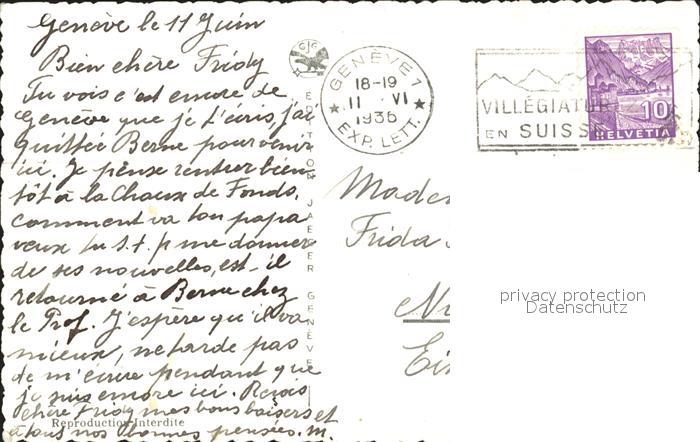 Genève le 11 Juin
Bien chère Fridy
Tu vois c'est encore de
Genève que je t'écris, j'ai
quittée Berne pour venir
ici. Je pense rentrer bien
tôt à la Chaux de Fonds,
comment va ton papa
veux tu s.t.p me donner
de ses nouvelles, est-il
retourné à Berne chez
le Prof. J'espère qu'il va
mieux, ne tarde pas
de m'écrire pendant que
je suis encore ici. Reçois
chère Fridy mes bons baisers et
à tous nos bonnes pensées. M.
Reproduction Interdite
JAEGER GENÈVE
GENÈVE 1
18-19
11 VI
1936
EXP. LETT.
VILLÉGIATUR
EN SUISSE
10
HELVETIA
Mades
Frida
privacy protection
Datenschutz